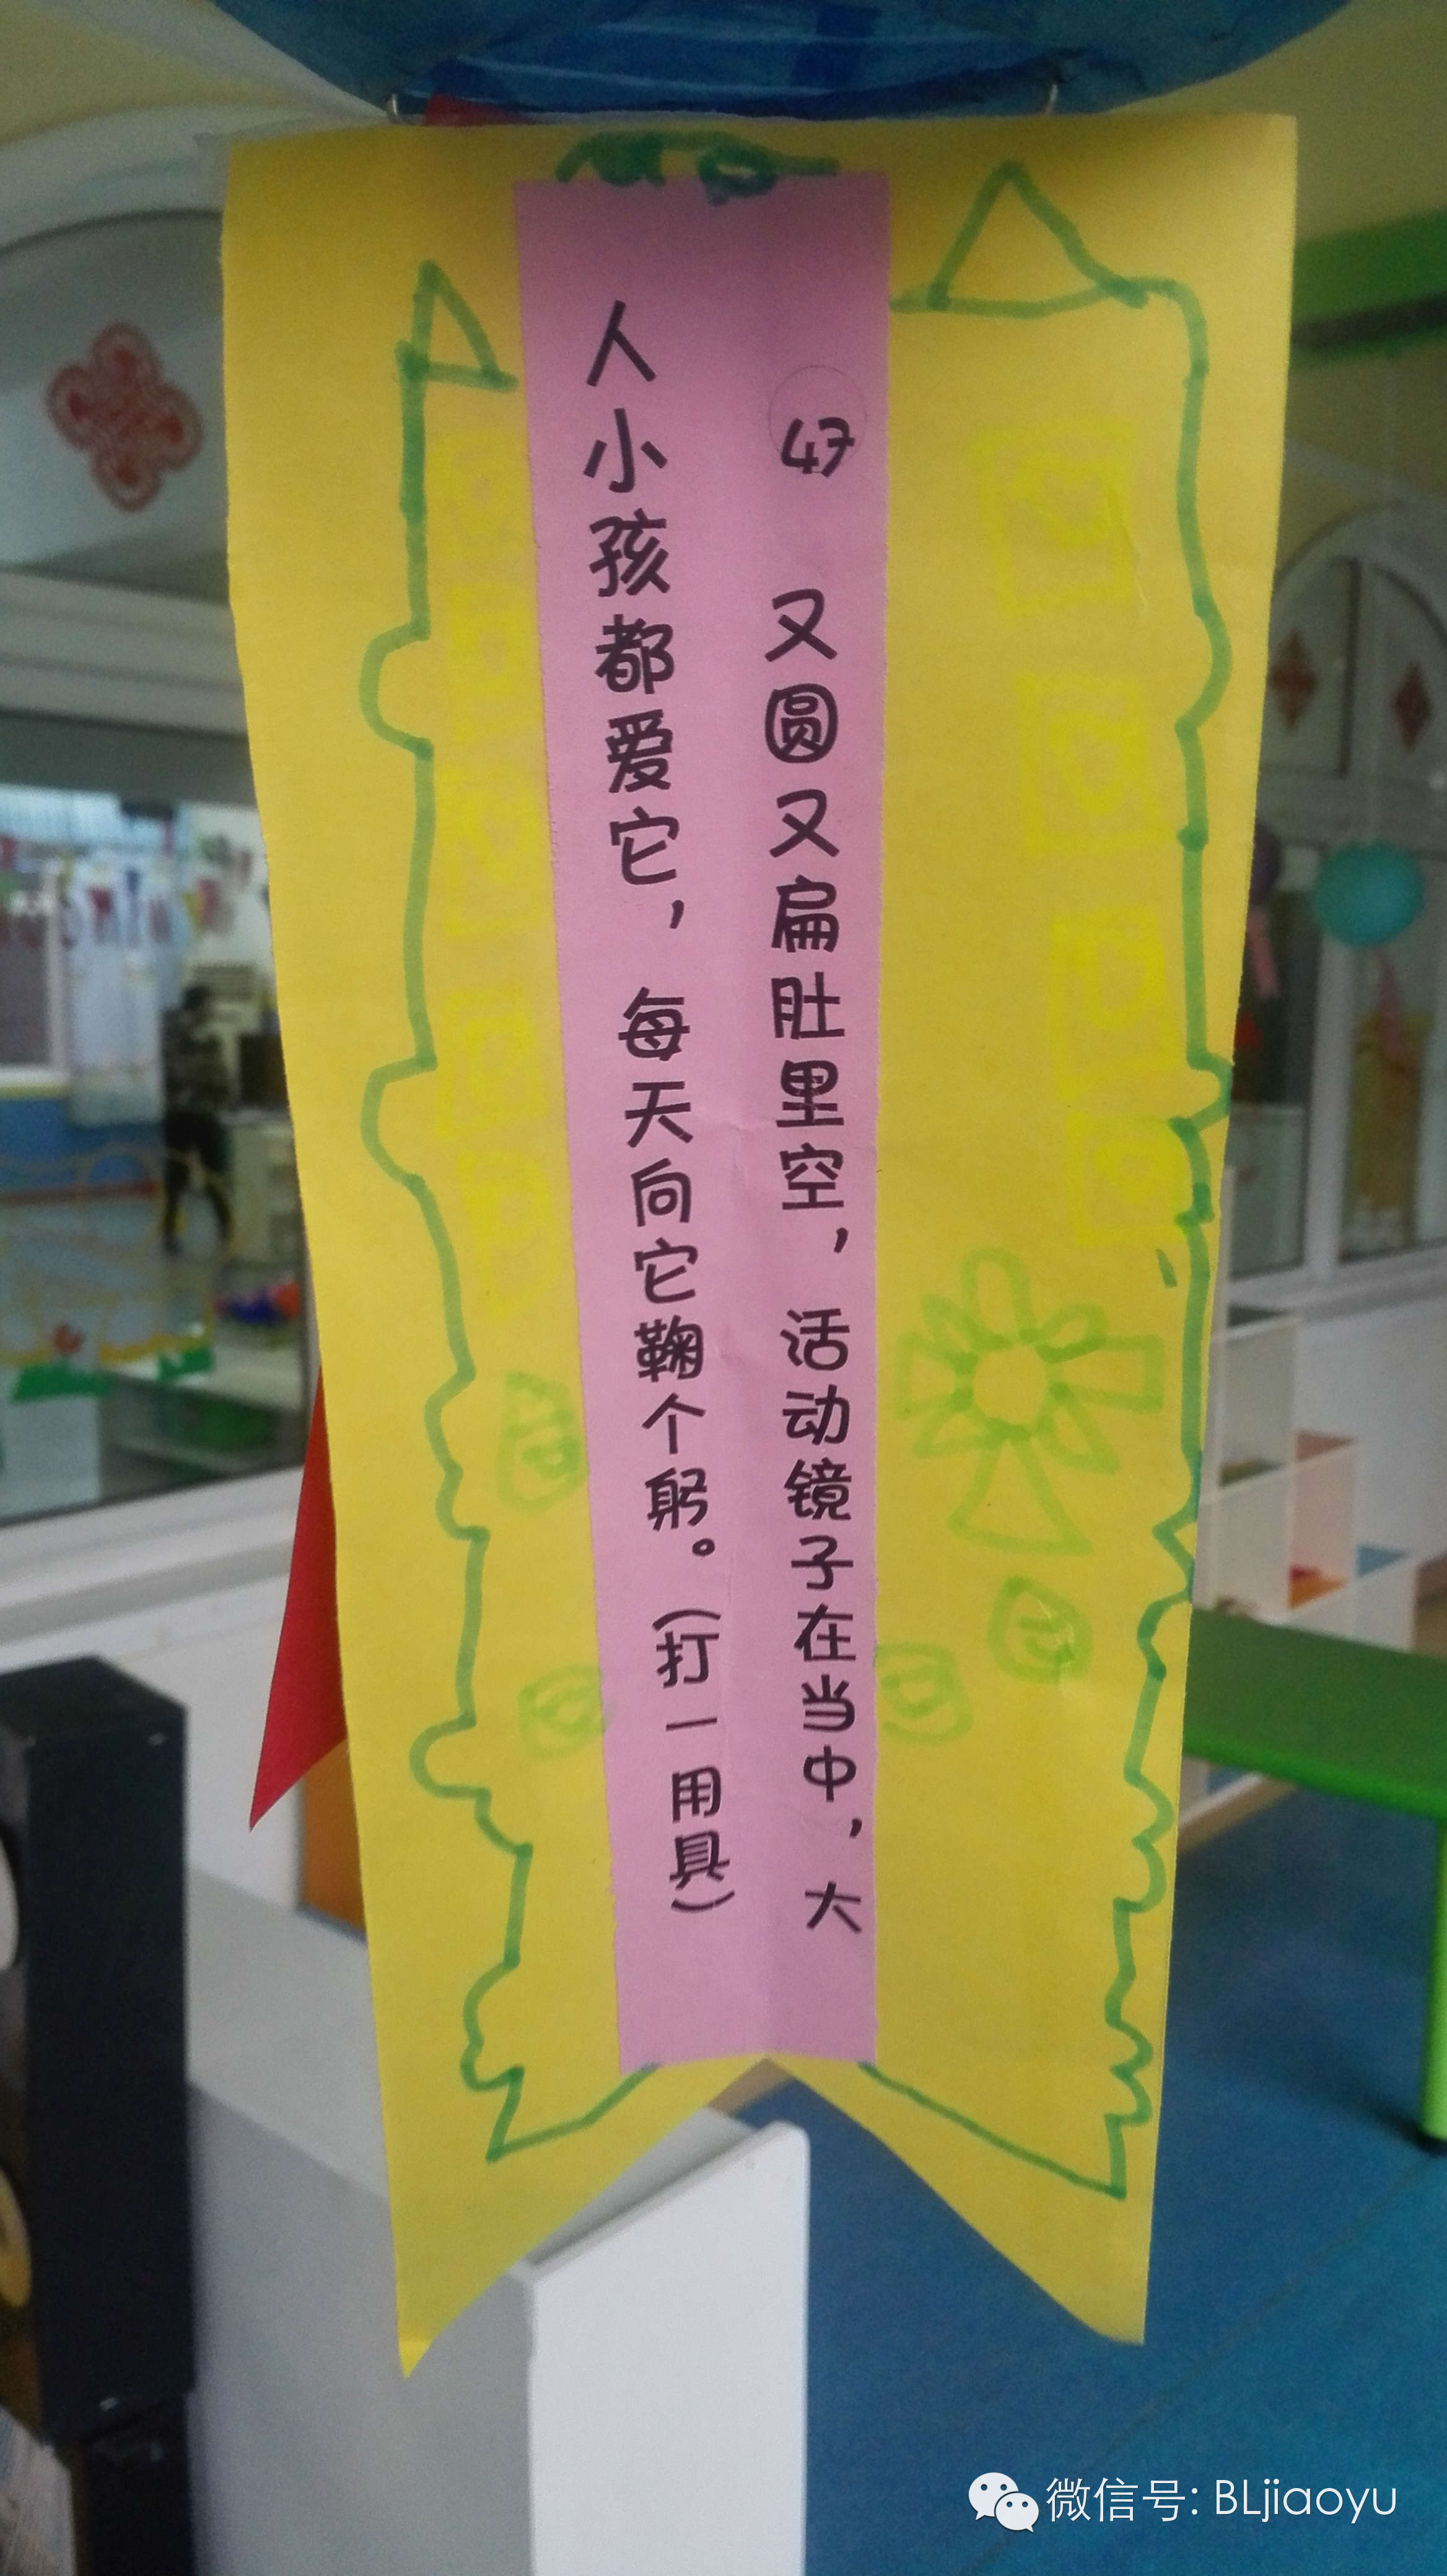 47 又圆又扁肚里空，活动镜子在当中，大
人小孩都爱它，每天向它鞠个躬。（打一用具）
微信号: BLjiaoyu